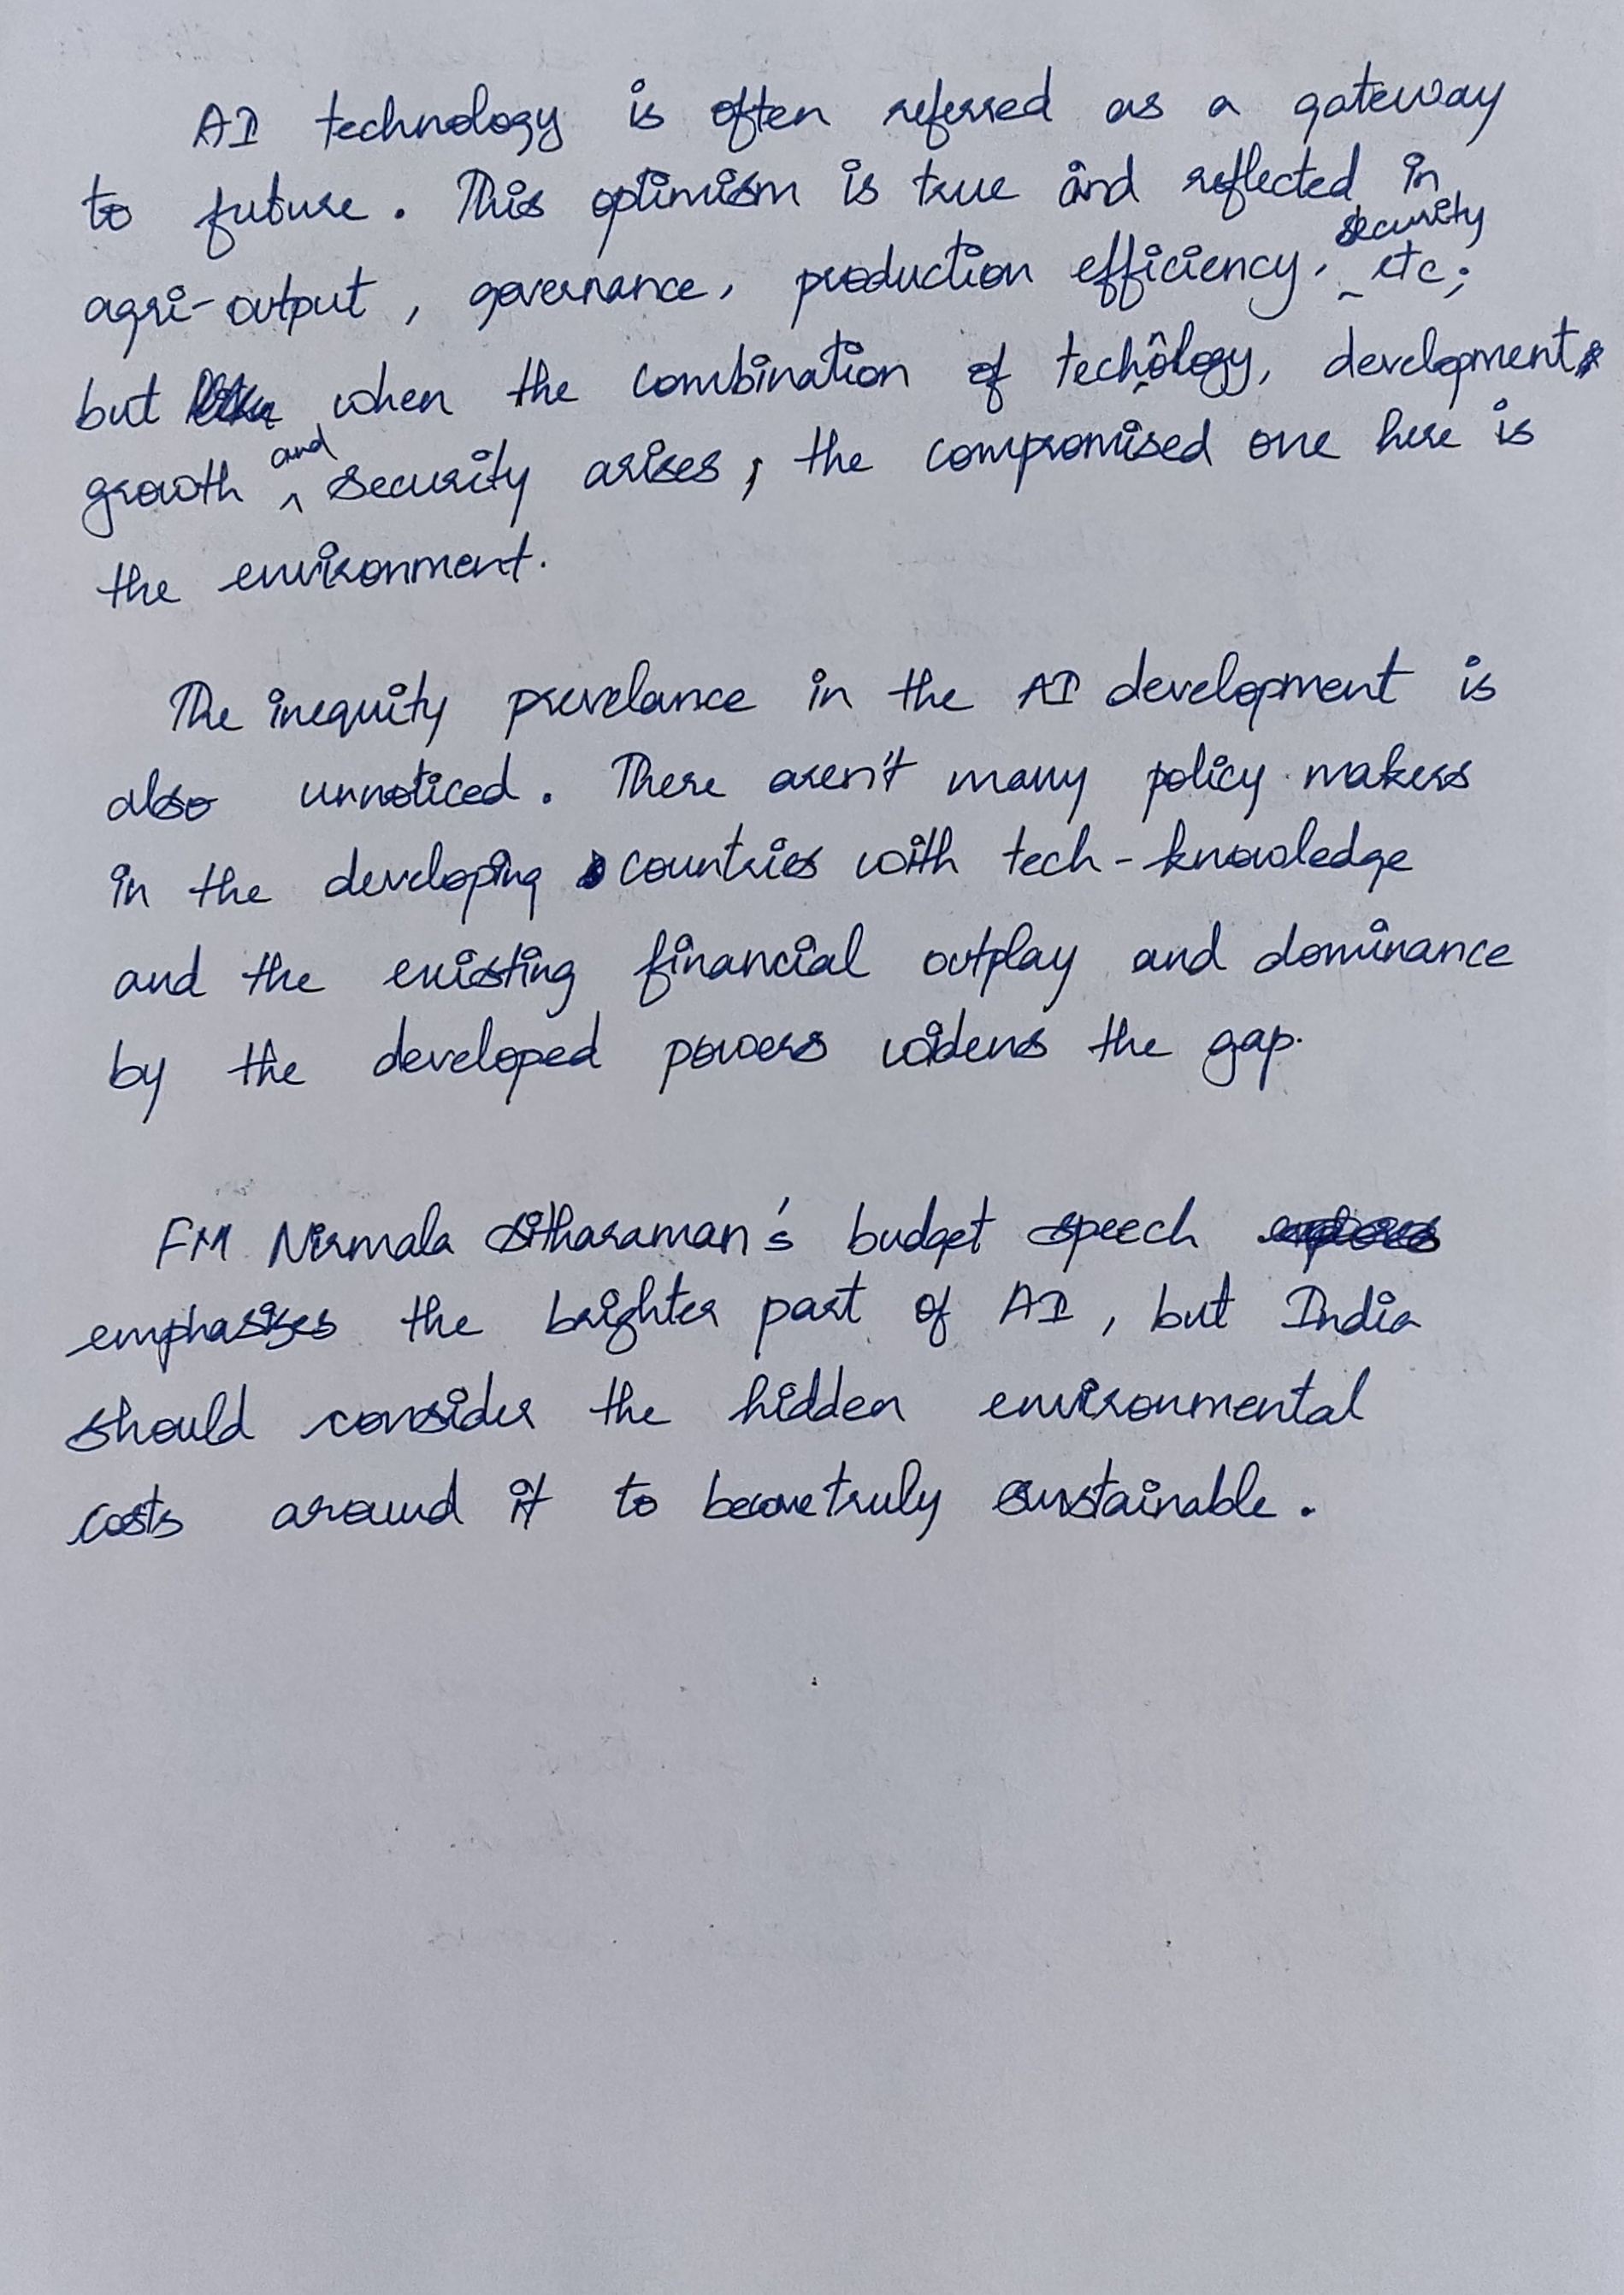 AI technology is often referred as a gateway
to future. This optimism is true and reflected in
agri-output, governance, production efficiency, security etc;
but when the combination of techology, development,
growth and security arises, the compromised one here is
the environment.
The inequity prevelance in the AI development is
also unnoticed. There aren't many policy makers
in the developing countries with tech-knowledge
and the existing financial outplay and dominance
by the developed powers widens the gap.
FM Nirmala Sitharaman's budget speech
emphasizes the brighter part of AI, but India
should consider the hidden environmental
costs around it to become truly sustainable.